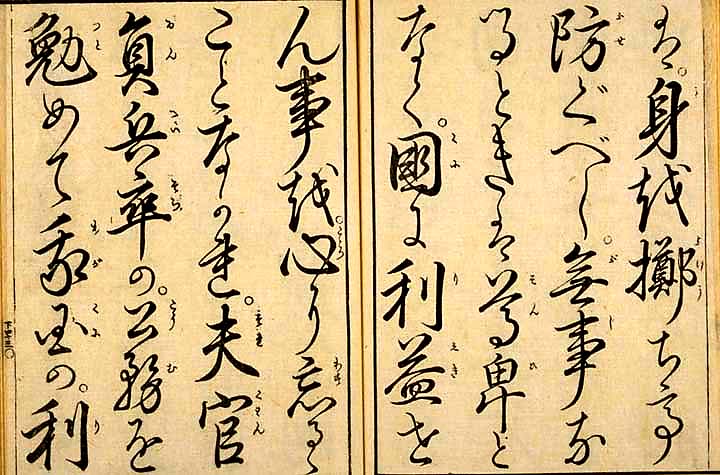 は。身を擲ちて
防ぐべし。無事な
るときは尊卑と
なく。國に利益せ
ん事を。心に忘るゝ
ことなかれ。夫官
員兵卒の。公務を
勉めて我国の。利